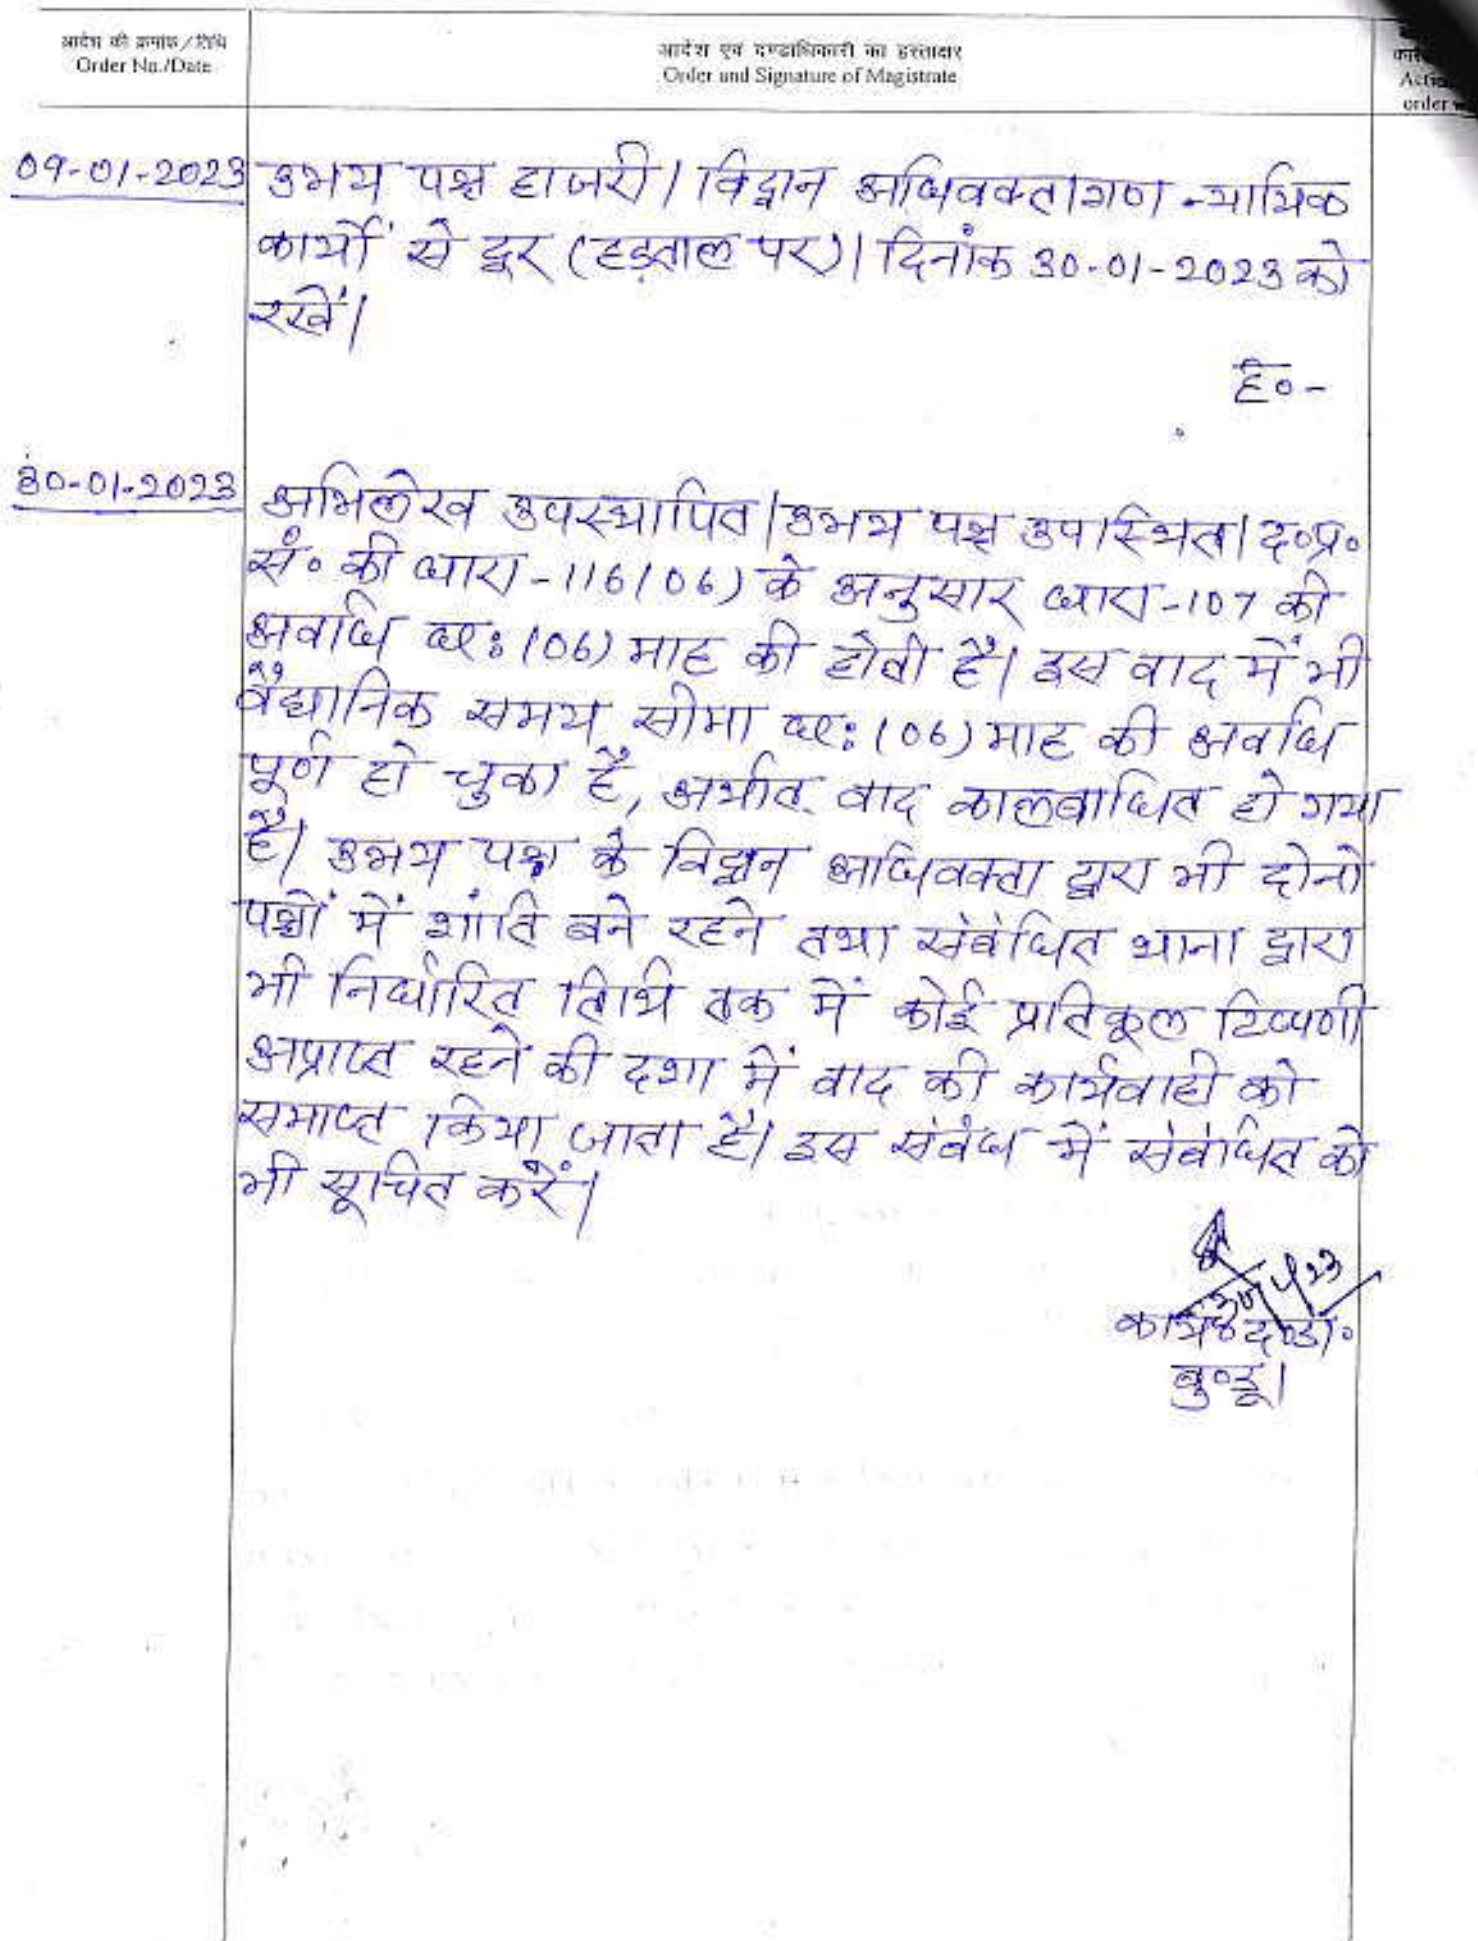 आदेश की क्रमांक/तिथि
Order No./Date
आदेश एवं दण्डाधिकारी का हस्ताक्षर
Order and Signature of Magistrate
Acti
order
09-01-2023
उभय पक्ष हाजरी। विद्वान अधिवक्तागण न्यायिक
कार्यों से दूर (हड़ताल पर)। दिनांक 30-01-2023 को
रखें।
ह०-
30-01-2023
अभिलेख उपस्थापित। उभय पक्ष उपस्थित। द०प्र०
सं० की धारा-116(06) के अनुसार धारा-107 की
अवधि छः (06) माह की होती है। इस वाद में भी
वैद्यानिक समय सीमा छः (06) माह की अवधि
पूर्ण हो चुका है, अर्थात् वाद कालबाधित हो गया
है। उभय पक्ष के विद्वान अधिवक्ता द्वारा भी दोनों
पक्षों में शांति बने रहने तथा संबंधित थाना द्वारा
भी निर्धारित तिथि तक में कोई प्रतिकूल टिप्पणी
अप्राप्त रहने की दशा में वाद की कार्यवाही को
समाप्त किया जाता है। इस संबंध में संबंधित को
भी सूचित करें।
30/1/23
कार्य० दण्डा०
बुण्डू।